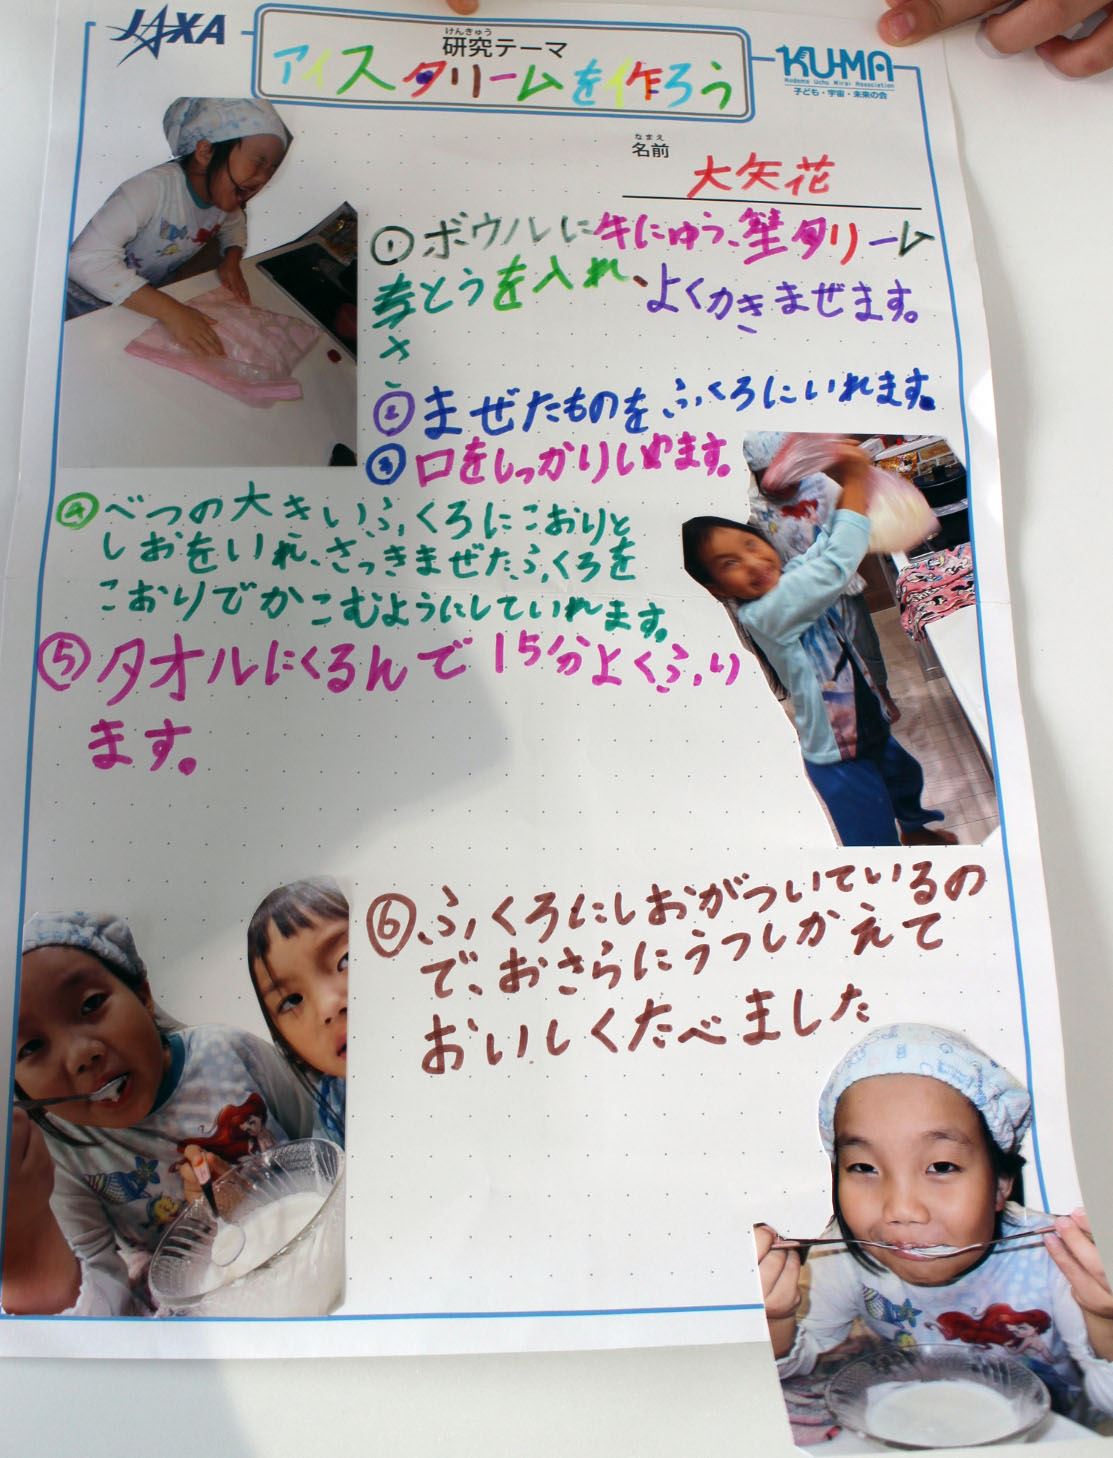 JAXA
けんきゅう
研究テーマ
アイスクリームを作ろう
KU-MA
Kodomo Uchu Mirai Association
子ども・宇宙・未来の会
なまえ
名前
大矢花
①ボウルに牛にゅう、生クリーム
さとうを入れ、よくかきまぜます。
②まぜたものをふくろにいれます。
③口をしっかりしめます。
④べつの大きいふくろにこおりと
しおをいれ、さっきまぜたふくろを
こおりでかこむようにしていれます。
⑤タオルにくるんで15分よくふり
ます。
⑥ふくろにしおがついているの
で、おさらにうつしかえて
おいしくたべました